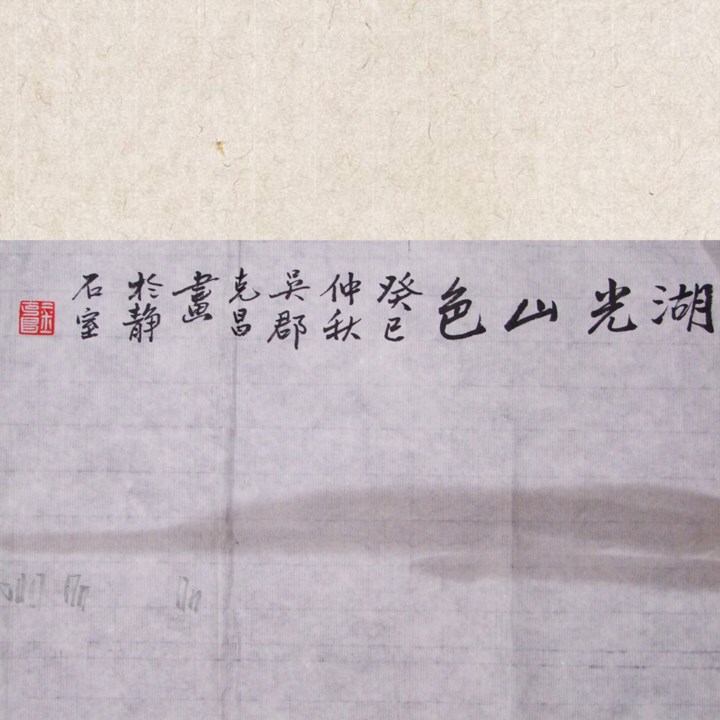 湖光山色
癸巳
仲秋
吳郡
克昌
畫
於静
石室